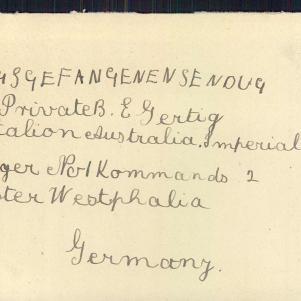 GSGEFANGENENSENDUG
Private B. E Gertig
talion Australia. Imperial
ger No1 Kommands 2
ster Westphalia
Germany.